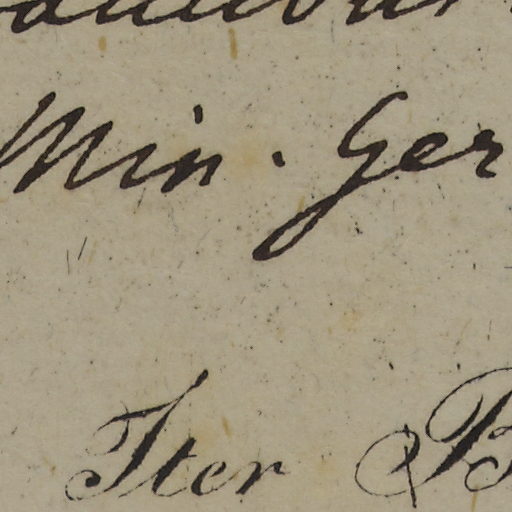 Min. Ger
Iter B